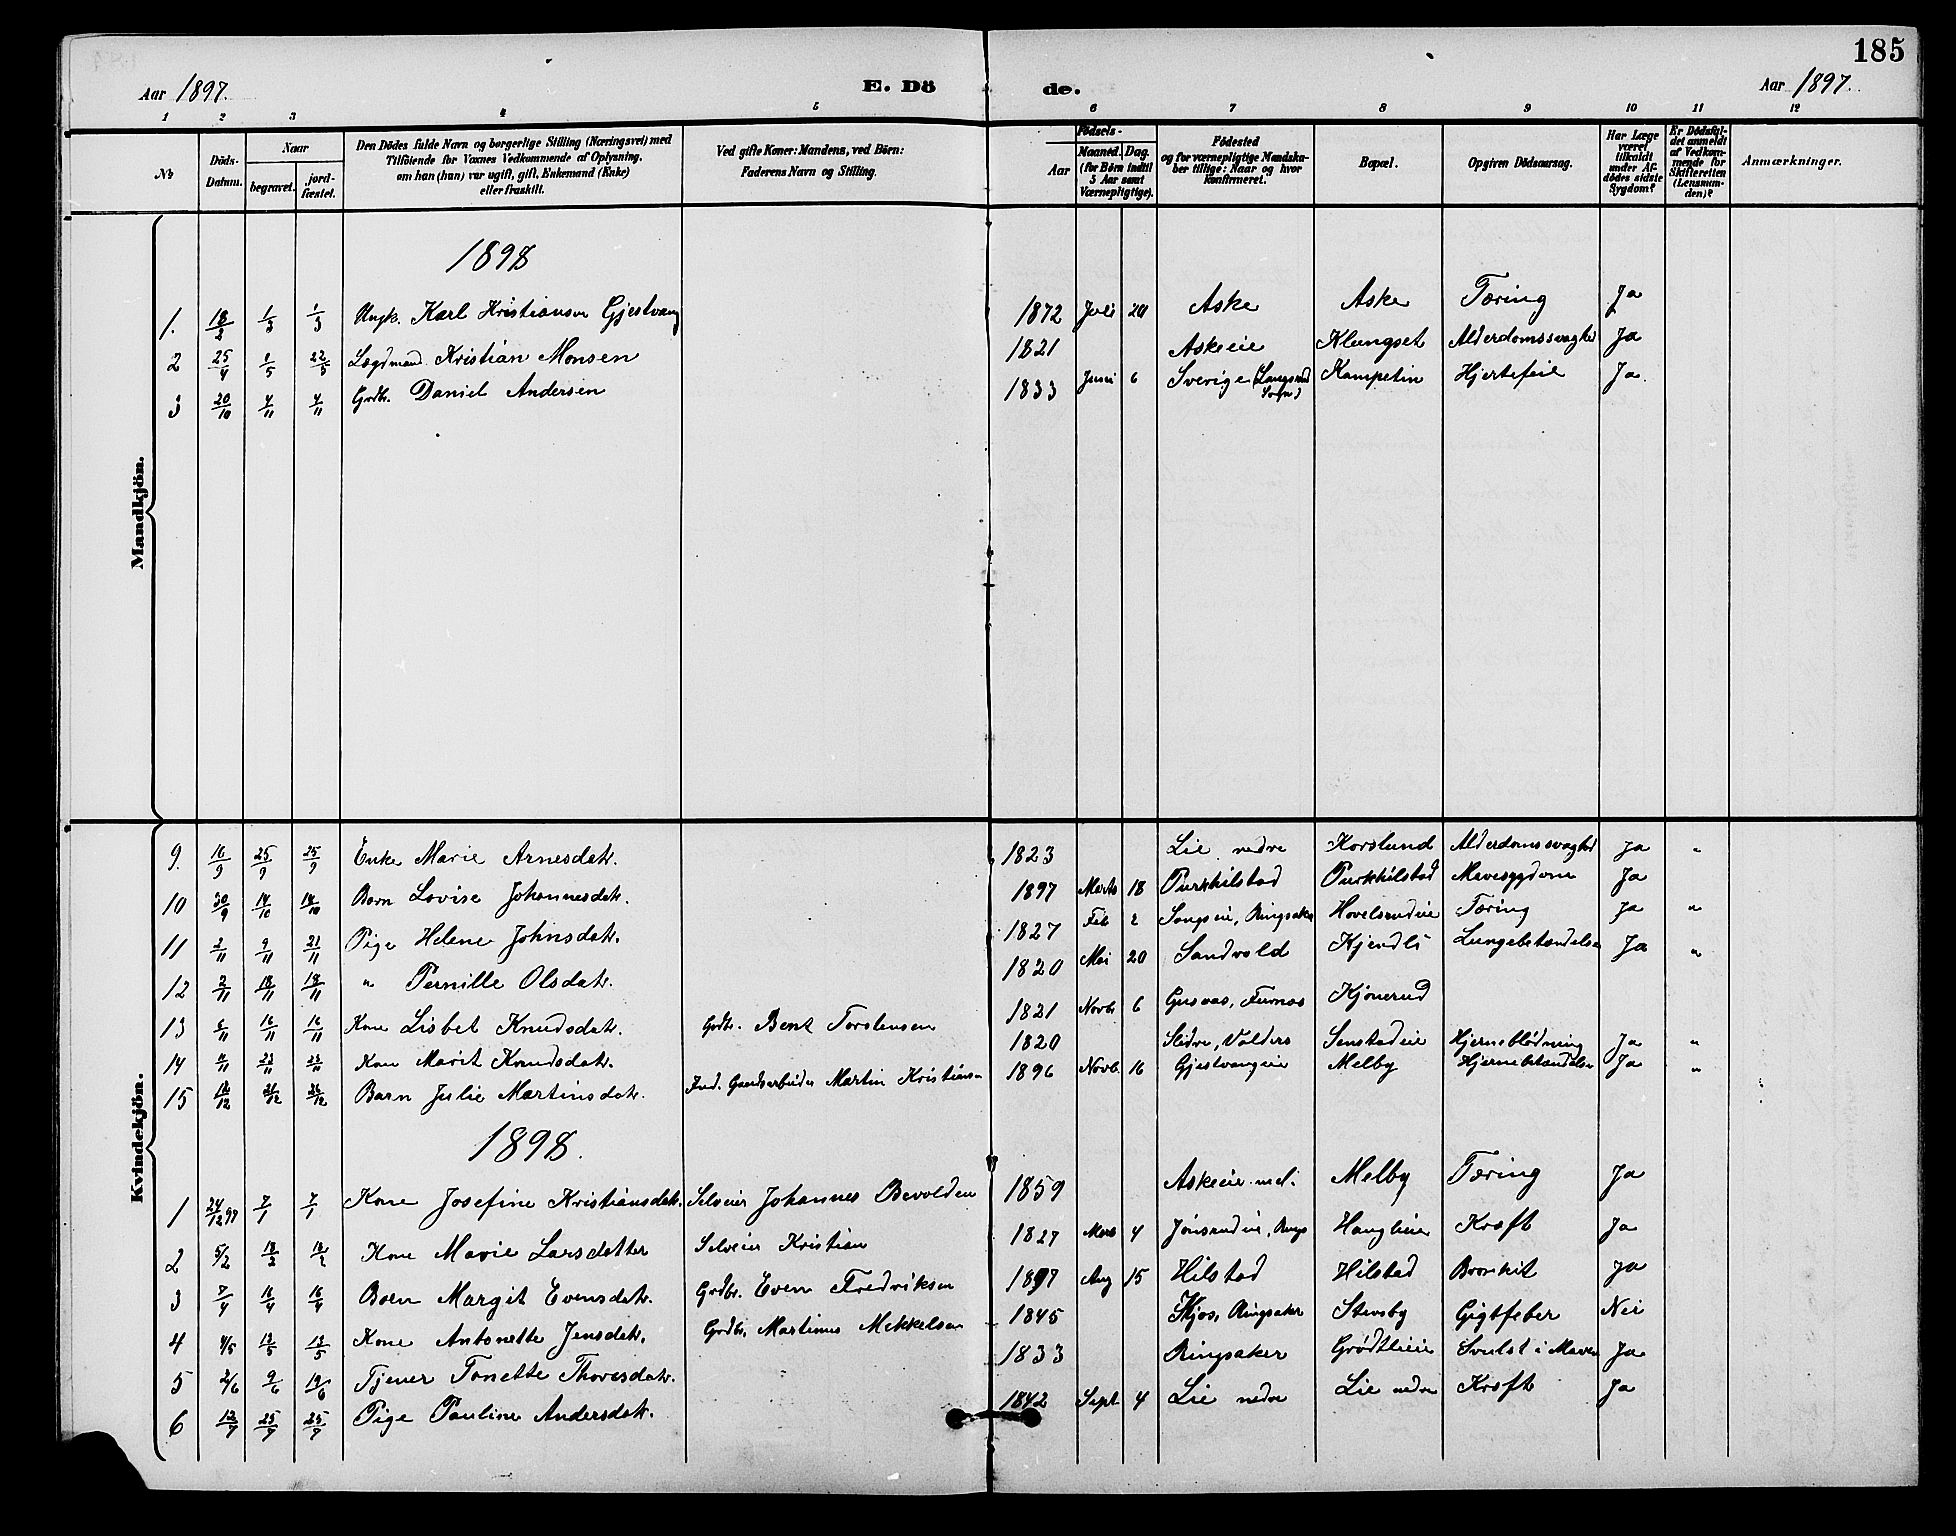 185
Aar 1897. E. Dö de. Aar 1897.
1 2 3 4 5 6 7 8 9 10 11 12
No
Döds-Datum.
Naar
begravet. jord-fæstet.
Den Dödes fulde Navn og borgerlige Stilling (Næringsvei) med
Tilföiende for Voxnes Vedkommende af Oplysning,
om han (hun) var ugift, gift, Enkemand (Enke)
eller fraskilt.
Ved gifte Koner: Mandens, ved Börn:
Faderens Navn og Stilling.
Födsels-
Aar
Maaned. Dag.
(for Börn indtil
5 Aar samt
Værnepligtige).
Födested
og for værnepligtige Mandska-
ber tillige: Naar og hvor
Konfirmeret.
Bopæl.
Opgiven Dödsaarsag.
Har Læge
været
tilkaldt
under Af-
dödes sidste
Sygdom?
Er Dödsfal-
det anmeldt
af Vedkom-
mende for
Skifteretten
(Lensman-
den)?
Anmærkninger.
Mandkjön.
1898
1. 18/2 1/3 1/3 Ungk. Karl Kristiansen Gjestvang 1872 Juli 29 Aske Aske Tæring Ja
2 25/4 1/5 22/5 Lægdmand Kristian Monsen 1821 Askeeie Klungset Alderdomssvaghed Ja
3 20/10 4/11 4/11 Grdbr. Daniel Andersen 1833 Juni 6 Sverige (Langserud Sogn) Kampetin Hjertefeil Ja.
Kvindekjön.
9. 16/9 25/9 25/9 Enke Marie Arnesdatr. 1823 Lie nedre Korslund Alderdomssvaghed Ja "
10 30/9 14/10 14/10 Barn Lovise Johannesdatr. 1897 Marts 18 Purkhilstad Purkhilstad Mavesygdom Ja
11 2/11 9/11 21/11 Pige Helene Johnsdatr. 1827 Feb 2 Songseie, Ringsaker Hovelsrudeie Tæring Ja "
12 2/11 18/11 18/11 " Pernille Olsdatr. 1820 Mai 20 Sandvold Kjendli Lungebetændelse Ja "
13 6/11 16/11 16/11 Kone Lisbet Knudsdatr. Grdbr. Bent Torstensen 1821 Novb 6 Gusvas, Furnes Kjönerud
14 11/11 23/11 23/11 Kone Marit Knudsdatr. 1820 Slidre, Valders Senstadeie Hjerneblödning Ja "
15 18/12 26/12 26/12 Barn Julie Martinsdatr. Ind. Gaardsarbeider Martin Kristiansen 1896 Novb 16 Gjestvangeie Melby Hjernebetændelse Ja "
1898.
1 24/12 97 7/1 7/1 Kone Josefine Kristiansdatr. Selveier Johannes Bevolden 1859 Askeeie Melby Tæring Ja
2 5/2 18/2 18/2 Kone Marie Larsdatter Selveier Kristian 1827 Marts 4 Jönsrudeie, Rings Hauglieie Kræft Ja
3 7/4 16/4 16/4 Barn Margit Evensdatr. Grdbr. Even Fredriksen 1897 Aug 15 Hilstad Hilstad Bronkit Ja
4 4/5 13/5 13/5 Kone Antonette Jensdatr. Grdbr. Martinus Mekkelsen 1845 Skjos, Ringsaker Stensby Gigtfeber Nei
5 2/6 9/6 19/6 Tjener Tonette Thoresdatr. 1833 Ringsaker Grödtlieie Svulst i Maven Ja
6 12/7 25/7 25/7 Pige Pauline Andersdatr. 1842 Sept 4 Lie nedre Lie nedre Kræft Ja